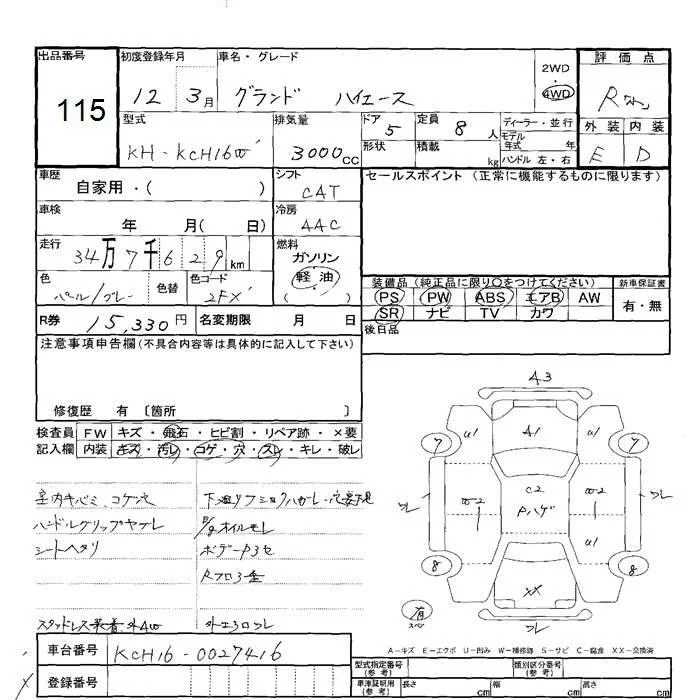 出品番号 初度登録年月 車名・グレード 2WD 4WD 評価点
115 12 3月 グランド ハイエース R
型式 排気量 ドア 5 定員 8人 ディーラー・並行 外装 内装
KH-KCH16W 3000cc 形状 積載 kg モデル年式 年 ハンドル 左・右 E D
車歴 自家用・( ) シフト CAT セールスポイント(正常に機能するものに限ります)
車検 年 月( 日) 冷房 AAC
走行 34万7千629km 燃料 ガソリン (軽油)
色 パール/グレー 色替 色コード 2FX
装備品(純正品に限り○をつけてください) 新車保証書
PS PW ABS エアB AW 有・無
SR ナビ TV カワ
R券 15,330円 名変期限 月 日 後日品
注意事項申告欄(不具合内容等は具体的に記入して下さい)
修復歴 有〔箇所 〕
検査員 FW キズ・飛石・ヒビ割・リペア跡・×要
記入欄 内装 キズ・汚レ・コゲ・穴・スレ・キレ・破レ
A3
U1 A1 U1
7 7
フレ W2 C2 Pハゲ W2 フレ
U1
8 8
XX
有 スペア フレ
室内キバミ、コゲ穴
ハンドルグリップヤブレ
シートヘタリ
E/gオイルモレ
ボデーP3セ
Rフロ3歪
スタッドレス装着、外AW 外エ3ロフレ
A-キズ E-エクボ U-凹み W-補修跡 S-サビ C-腐食 XX-交換済
車台番号 KCH16-0027416
登録番号
型式指定番号(参考) 類別区分番号(参考)
車庫証明用(参考) 長さ cm 幅 cm 高さ cm